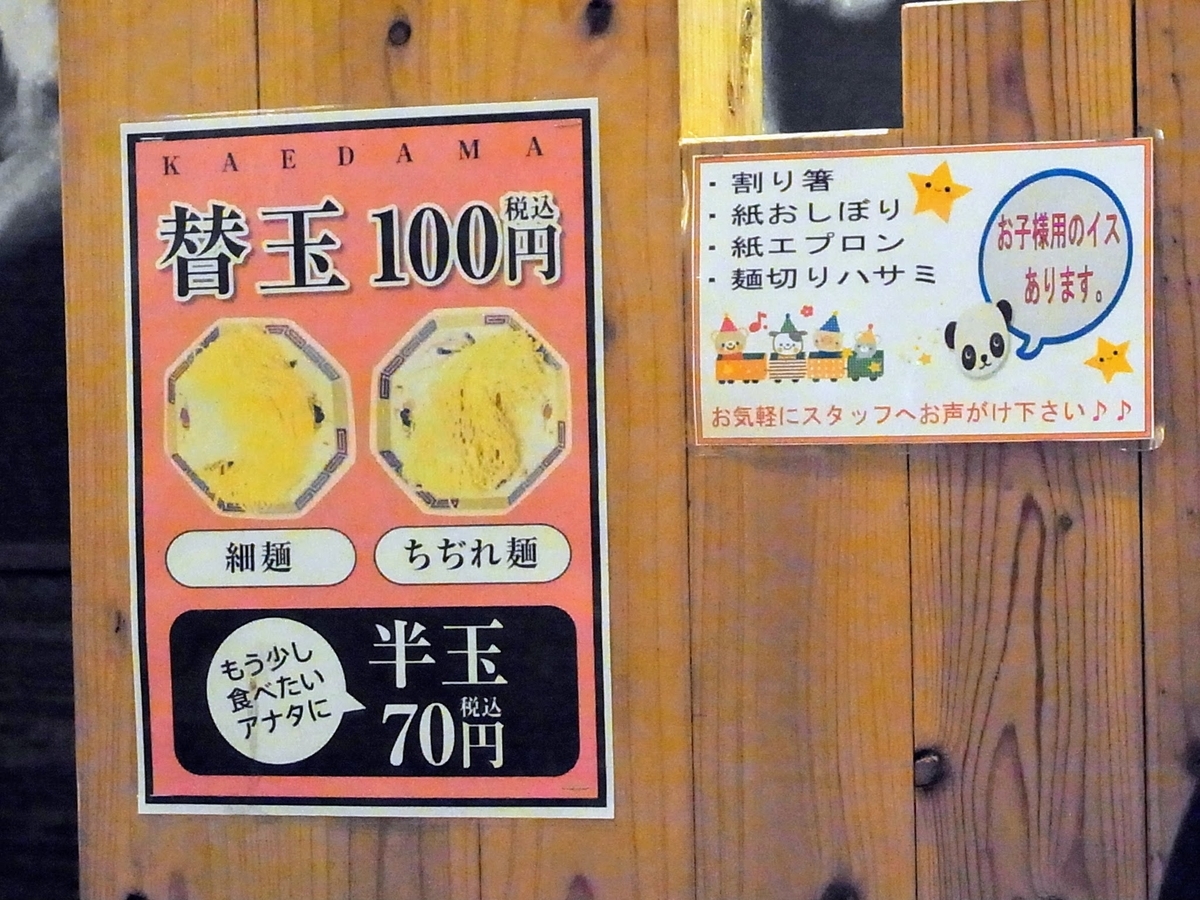 KAEDAMA
替玉 100円 税込
細麺
ちぢれ麺
もう少し
食べたい
アナタに
半玉
70円 税込
・割り箸
・紙おしぼり
・紙エプロン
・麺切りハサミ
お子様用のイス
あります。
お気軽にスタッフへお声がけ下さい♪♪